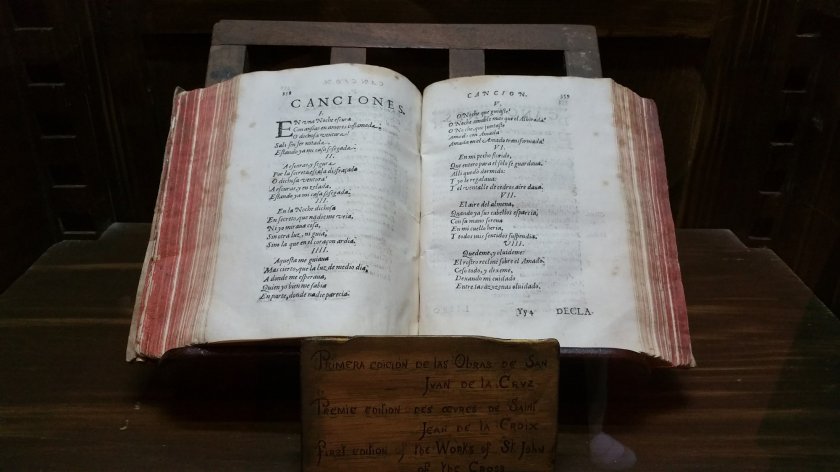 358
CANCIONES.
I.
EN vna Noche escura
Con ansias en amores inflamada
O dichosa ventura
Sali sin ser notada
Estando ya mi casa sosegada
II.
A escuras, y segura
Por la secreta escala disfrazada
O dichosa ventura
A escuras, y en zelada
Estando ya mi casa sosegada
III.
En la Noche dichosa
En secreto, que nadie me veia,
Ni yo miraua cosa,
Sin otra luz, ni guia,
Sino la que en el coraçon ardia.
IIII.
Aquesta me guiaua
Mas cierto, que la luz de medio dia,
A donde me esperaua,
Quien yo bien me sabia
En parte, donde nadie parecia.
CANCION.
359
V.
O Noche que guiaste
O Noche amable mas que el Aluorada
O Noche, que juntaste
Amado con Amada
Amada en el Amado transformada!
VI.
En mi pecho florido,
Que entero para èl solo se guardaua,
Alli quedò dormido:
Y yo le regalaua:
Y el ventalle de cedros aire daua.
VII.
El aire del almena,
Quando ya sus cabellos esparcia,
Con su mano serena
En mi cuello heria,
Y todos mis sentidos suspendia.
VIII.
Quedeme, y oluideme:
El rostro recline sobre el Amado.
Cessò todo, y dexeme,
Dexando mi cuidado
Entre las açuzenas oluidado.
Yy 4 DECLA
PRIMERA EDICIÓN DE LAS OBRAS DE SAN
JUAN DE LA CRUZ
PREMIE EDITION DES ŒVRES DE SAINT
JEAN DE LA CROIX
FIRST EDITION OF THE WORKS OF ST. JOHN
OF THE CROSS